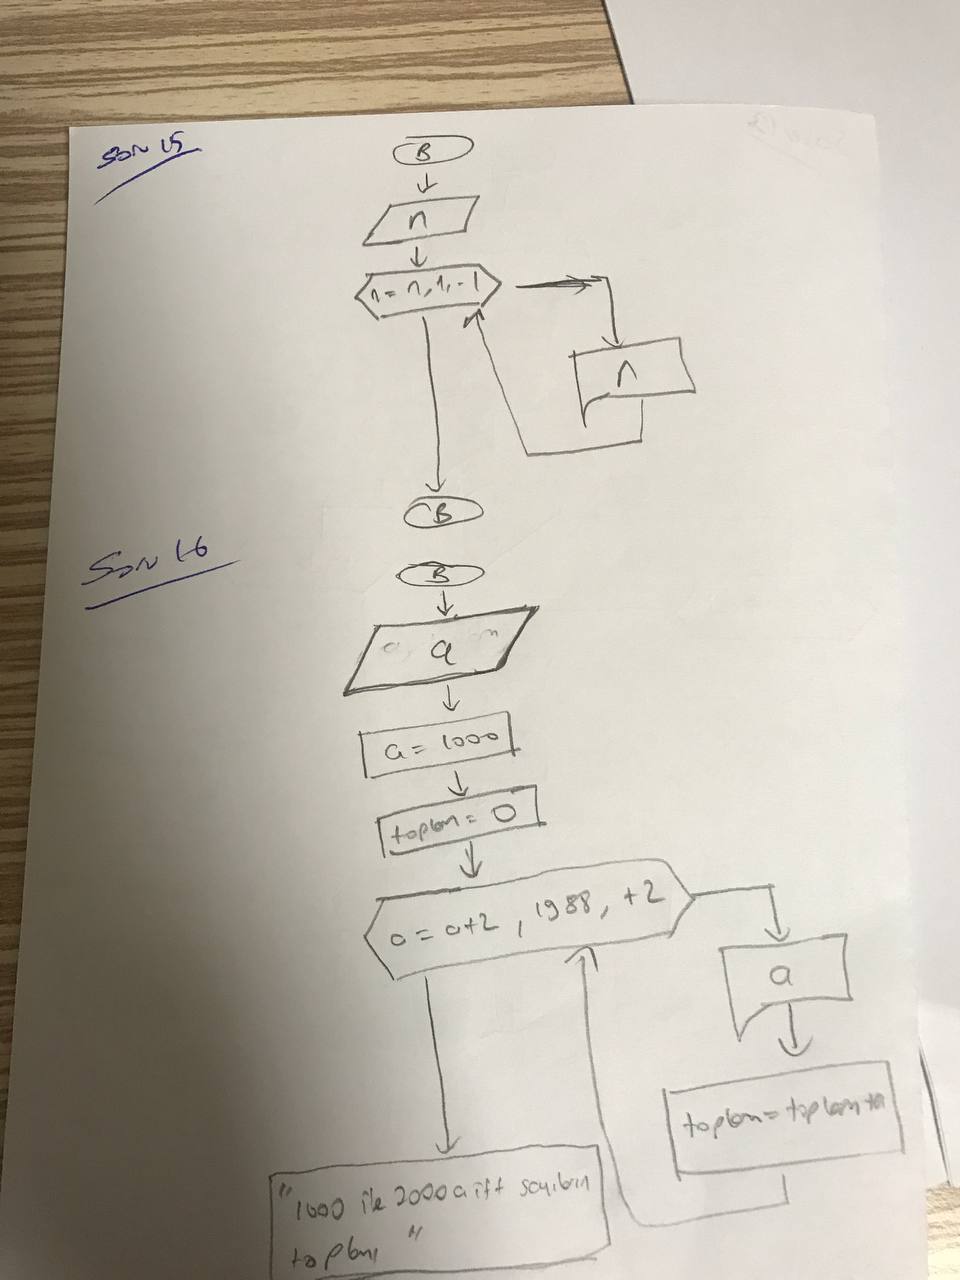 SORU 15
B
n
n = n, 1, -1
n
B
SORU 16
B
a
a = 1000
toplam = 0
a = a+2, 1988, +2
a
toplam = toplam + a
"1000 ile 2000 çift sayıların
toplamı "